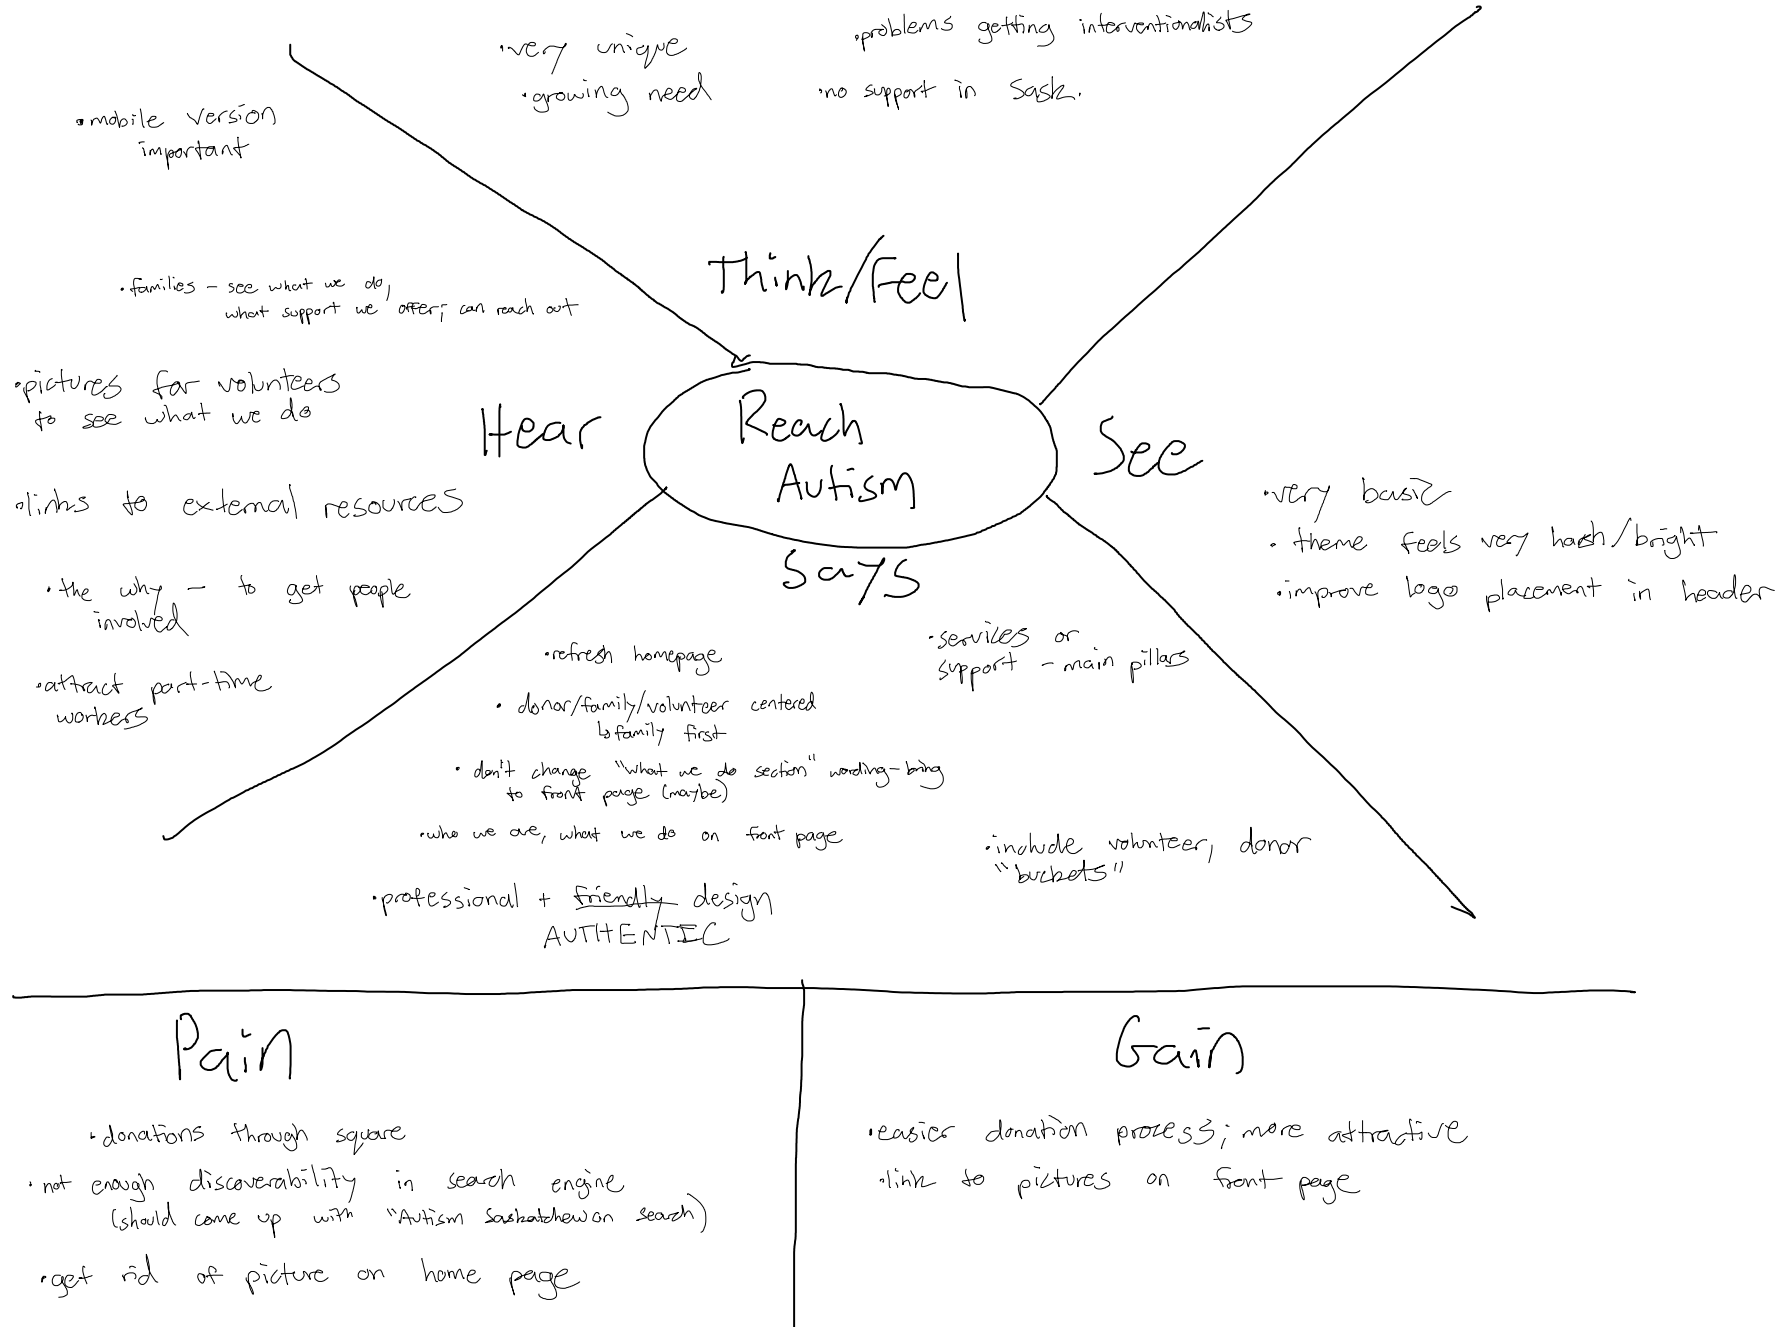 •very unique
•growing need
•problems getting interventionalists
•no support in Sask.
Think/Feel
•mobile version
important
•families – see what we do,
what support we offer; can reach out
•pictures for volunteers
to see what we do
•links to external resources
•the why – to get people
involved
•attract part-time
workers
Hear
Reach
Autism
See
•very basic
• theme feels very harsh/bright
•improve logo placement in header
Says
•refresh homepage
• donor/family/volunteer centered
↳family first
• don't change "what we do section" wording–bring
to front page (maybe)
•who we are, what we do on front page
•professional + friendly design
AUTHENTIC
•services or
support – main pillars
•include volunteer, donor
"buckets"
Pain
•donations through square
• not enough discoverability in search engine
(should come up with "Autism Saskatchewan search)
•get rid of picture on home page
Gain
•easier donation process; more attractive
•link to pictures on front page